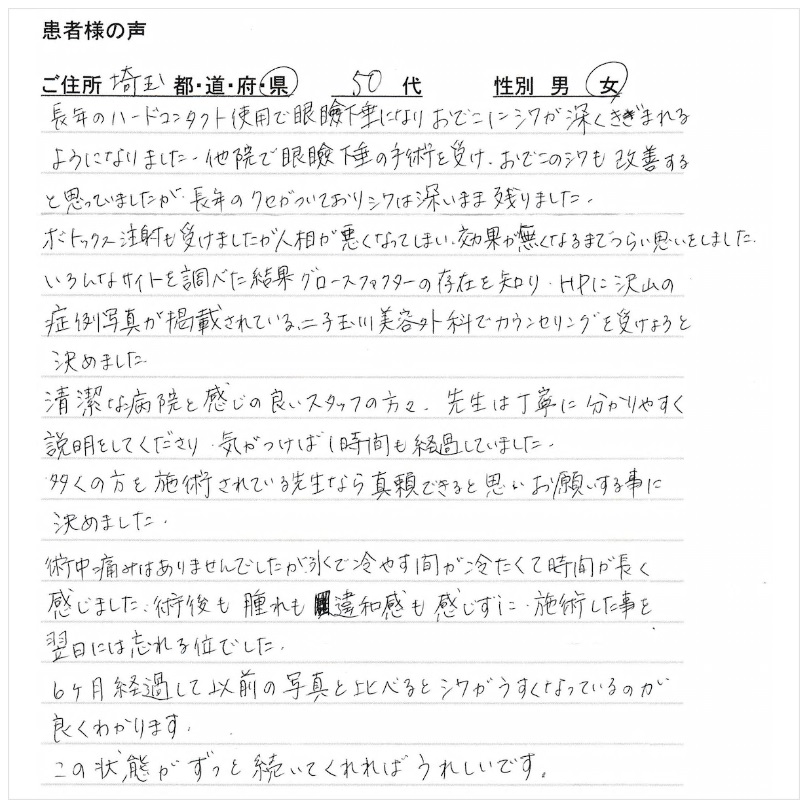 患者様の声
ご住所 埼玉 都・道・府・県 50 代 性別 男 女
長年のハードコンタクト使用で眼瞼下垂になりおでこにシワが深くきざまれる
ようになりました。他院で眼瞼下垂の手術を受け、おでこのシワも改善する
と思っていましたが長年のクセがついておりシワは深いまま残りました。
ボトックス注射も受けましたが人相が悪くなってしまい、効果が無くなるまでつらい思いをしました。
いろんなサイトを調べた結果グロースファクターの存在を知り、HPに沢山の
症例写真が掲載されている、二子玉川美容外科でカウンセリングを受けようと
決めました
清潔な病院と感じの良いスタッフの方々、先生は丁寧に分かりやすく
説明をしてくださり、気がつけば1時間も経過していました。
多くの方を施術されている先生なら真頼できると思いお願いする事に
決めました。
術中痛みはありませんでしたが氷で冷やす間が冷たくて時間が長く
感じました。術後も腫れも違和感も感じずに、施術した事を
翌日には忘れる位でした。
6ヶ月経過して以前の写真と比べるとシワがうすくなっているのが
良くわかります。
この状態がずっと続いてくれればうれしいです。